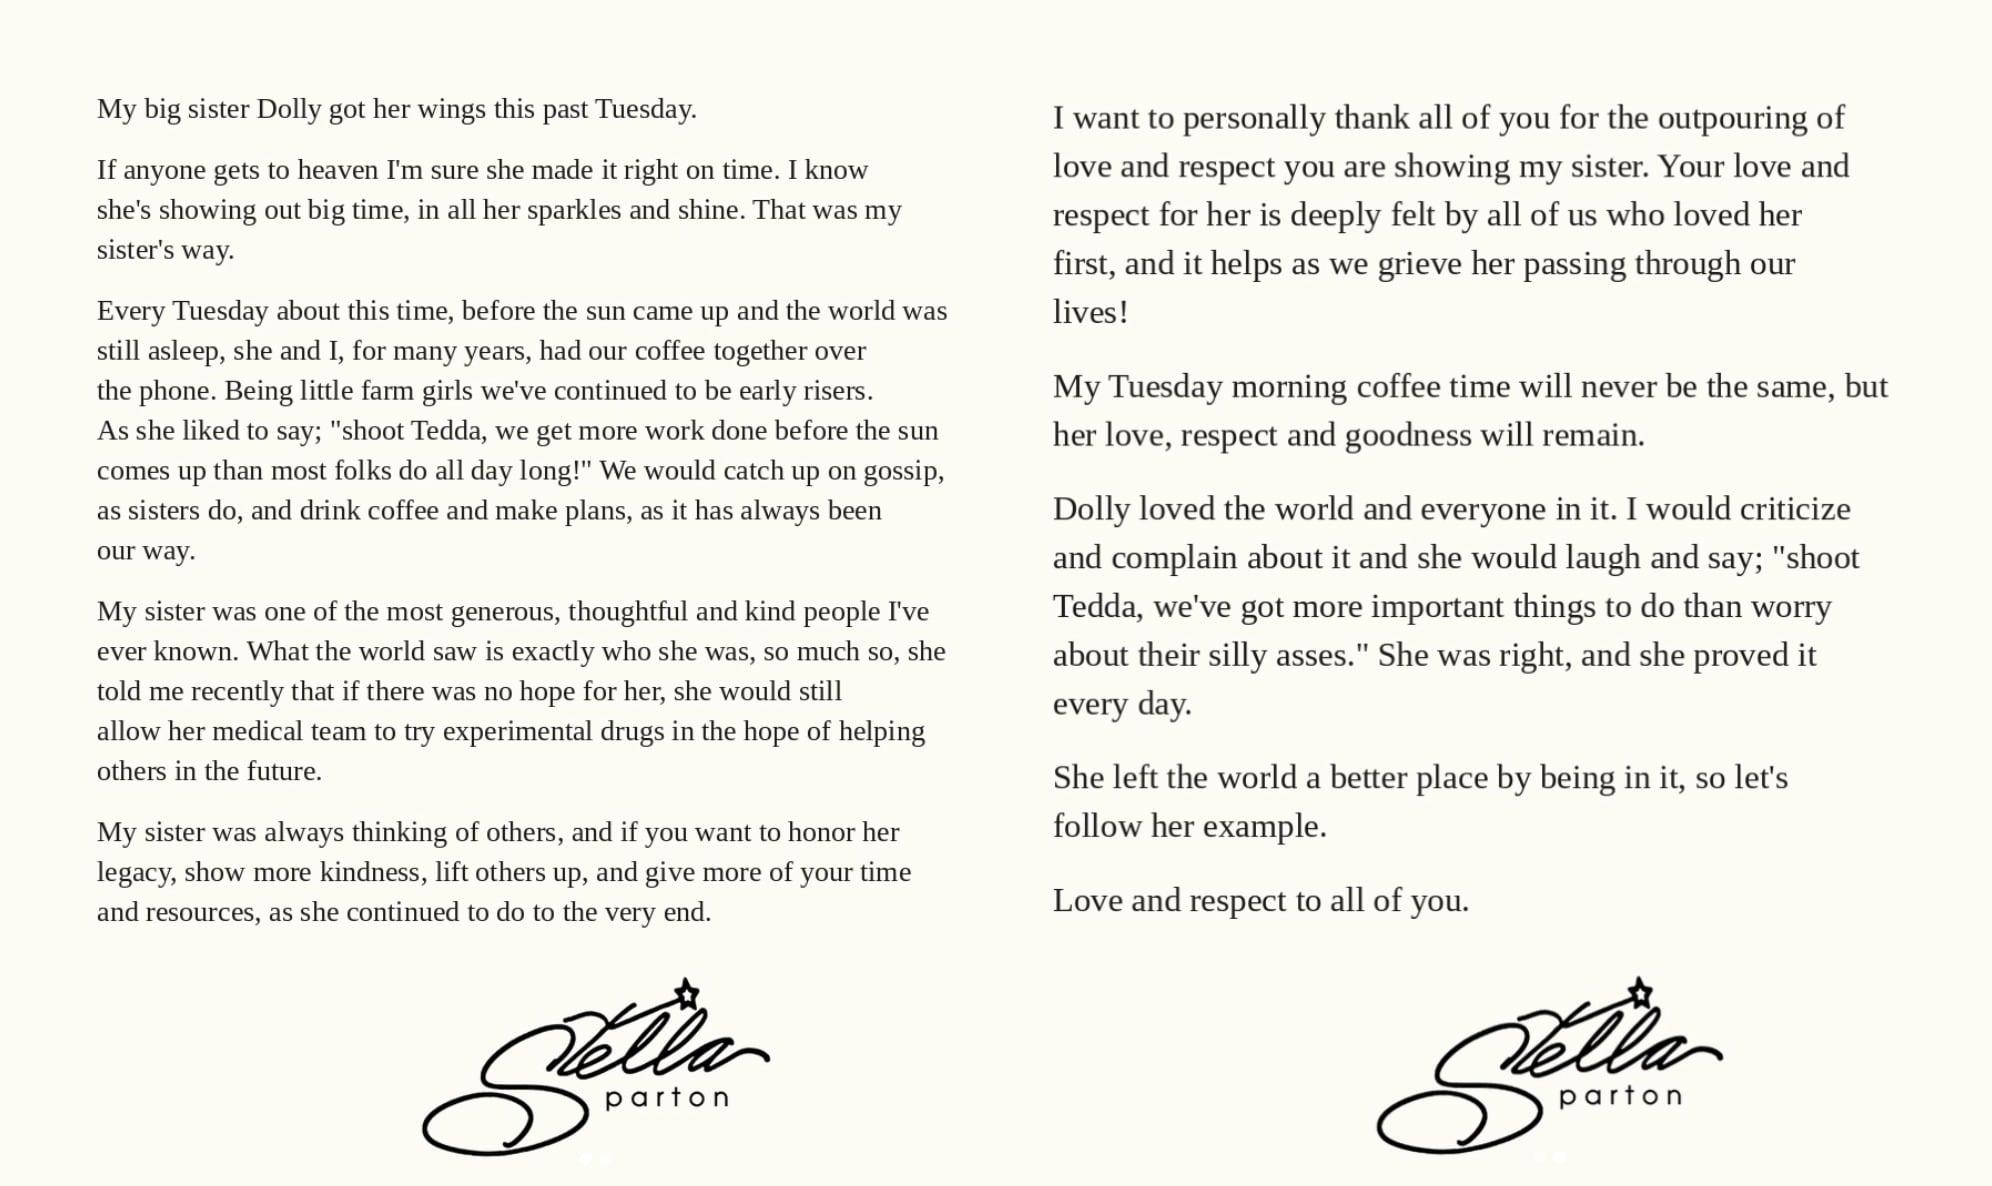 My big sister Dolly got her wings this past Tuesday.
If anyone gets to heaven I'm sure she made it right on time. I know
she's showing out big time, in all her sparkles and shine. That was my
sister's way.
Every Tuesday about this time, before the sun came up and the world was
still asleep, she and I, for many years, had our coffee together over
the phone. Being little farm girls we've continued to be early risers.
As she liked to say; "shoot Tedda, we get more work done before the sun
comes up than most folks do all day long!" We would catch up on gossip,
as sisters do, and drink coffee and make plans, as it has always been
our way.
My sister was one of the most generous, thoughtful and kind people I've
ever known. What the world saw is exactly who she was, so much so, she
told me recently that if there was no hope for her, she would still
allow her medical team to try experimental drugs in the hope of helping
others in the future.
My sister was always thinking of others, and if you want to honor her
legacy, show more kindness, lift others up, and give more of your time
and resources, as she continued to do to the very end.
Stella
parton
I want to personally thank all of you for the outpouring of
love and respect you are showing my sister. Your love and
respect for her is deeply felt by all of us who loved her
first, and it helps as we grieve her passing through our
lives!
My Tuesday morning coffee time will never be the same, but
her love, respect and goodness will remain.
Dolly loved the world and everyone in it. I would criticize
and complain about it and she would laugh and say; "shoot
Tedda, we've got more important things to do than worry
about their silly asses." She was right, and she proved it
every day.
She left the world a better place by being in it, so let's
follow her example.
Love and respect to all of you.
Stella
parton